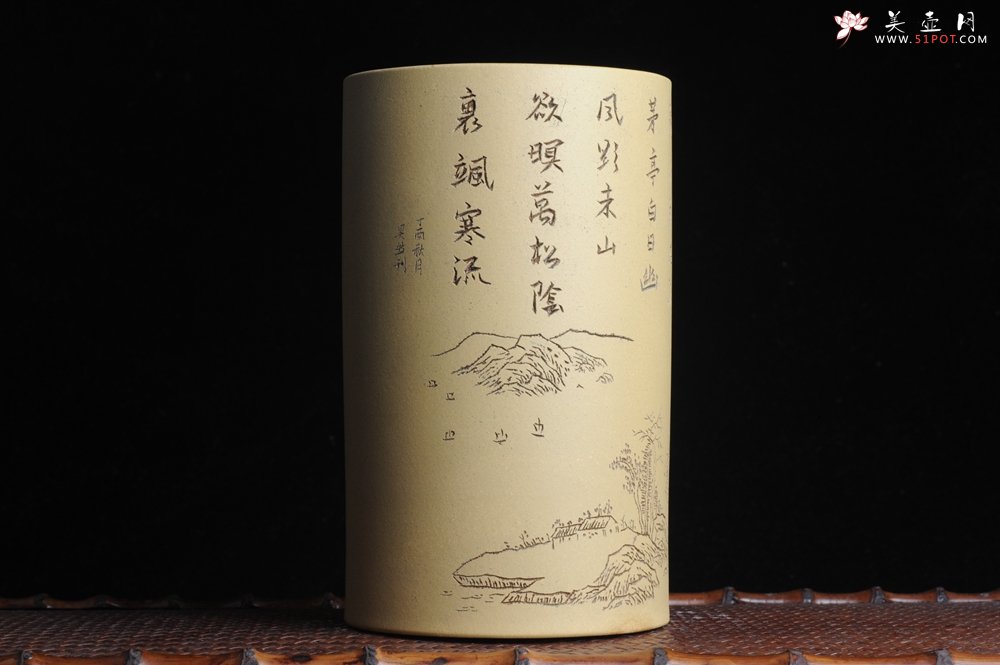 美壶网
WWW.51POT.COM
茅亭白日幽
风影未山
欲暝萬松陰
裏颯寒流
丁酉秋月